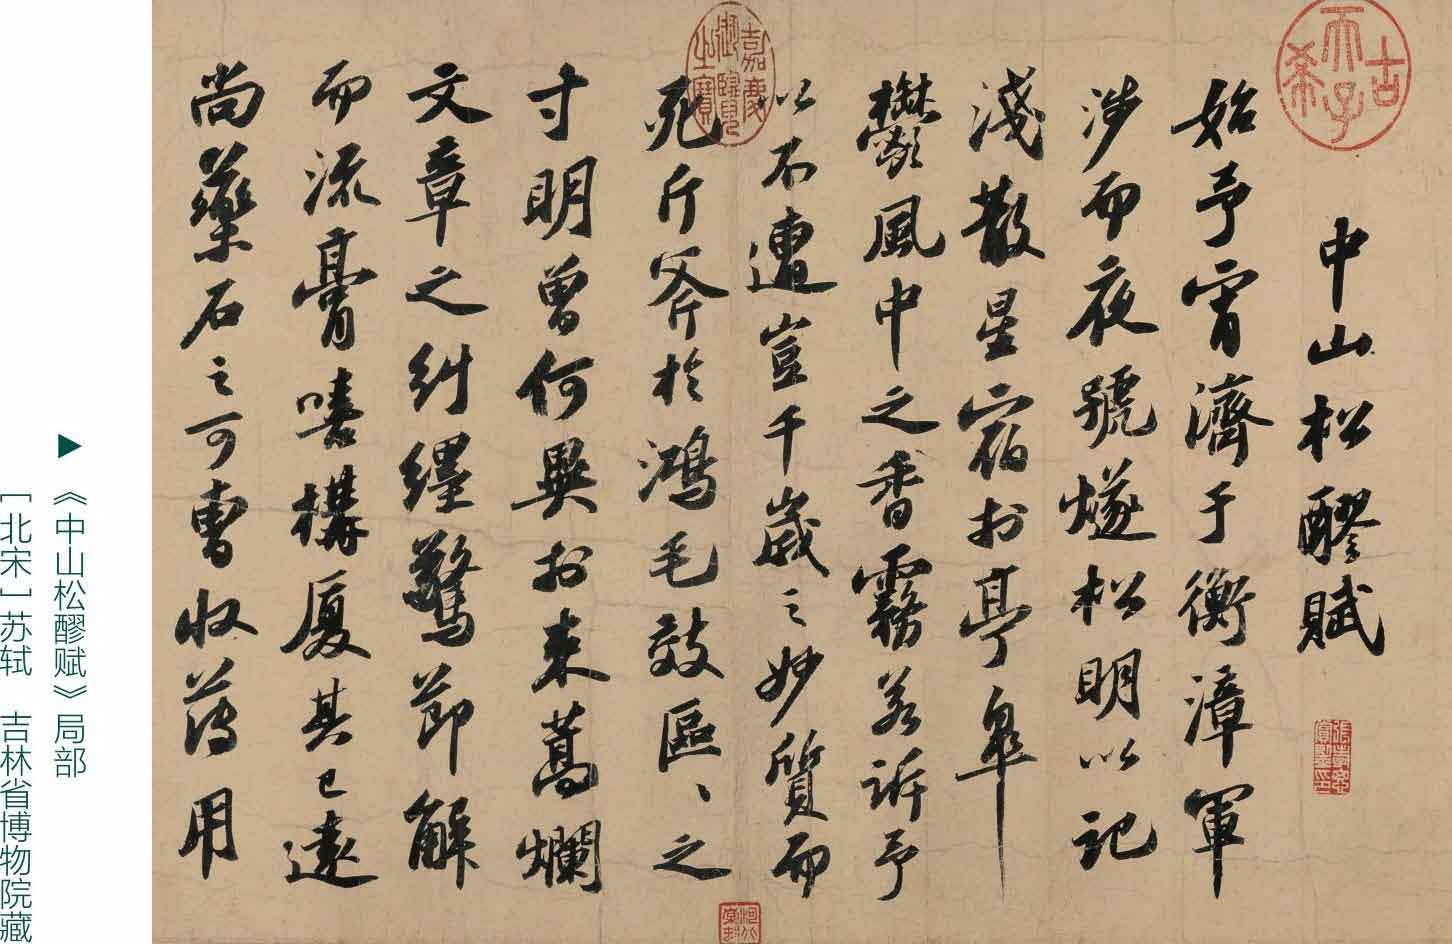 中山松醪賦
始予宵濟于衡漳軍
涉而夜號燧松明以記
淺散星宿於亭皋
鬱風中之香霧若訴予
以不遭豈千歲之妙質而
死斤斧於鴻毛效區〻之
寸明曾何異於束蒿爛
文章之糾纏驚節解
而流膏嘻構厦其已遠
尚藥石之可曹收薄用
古希天子
嘉慶御覽之寶
《中山松醪赋》局部
[北宋]苏轼 吉林省博物院藏